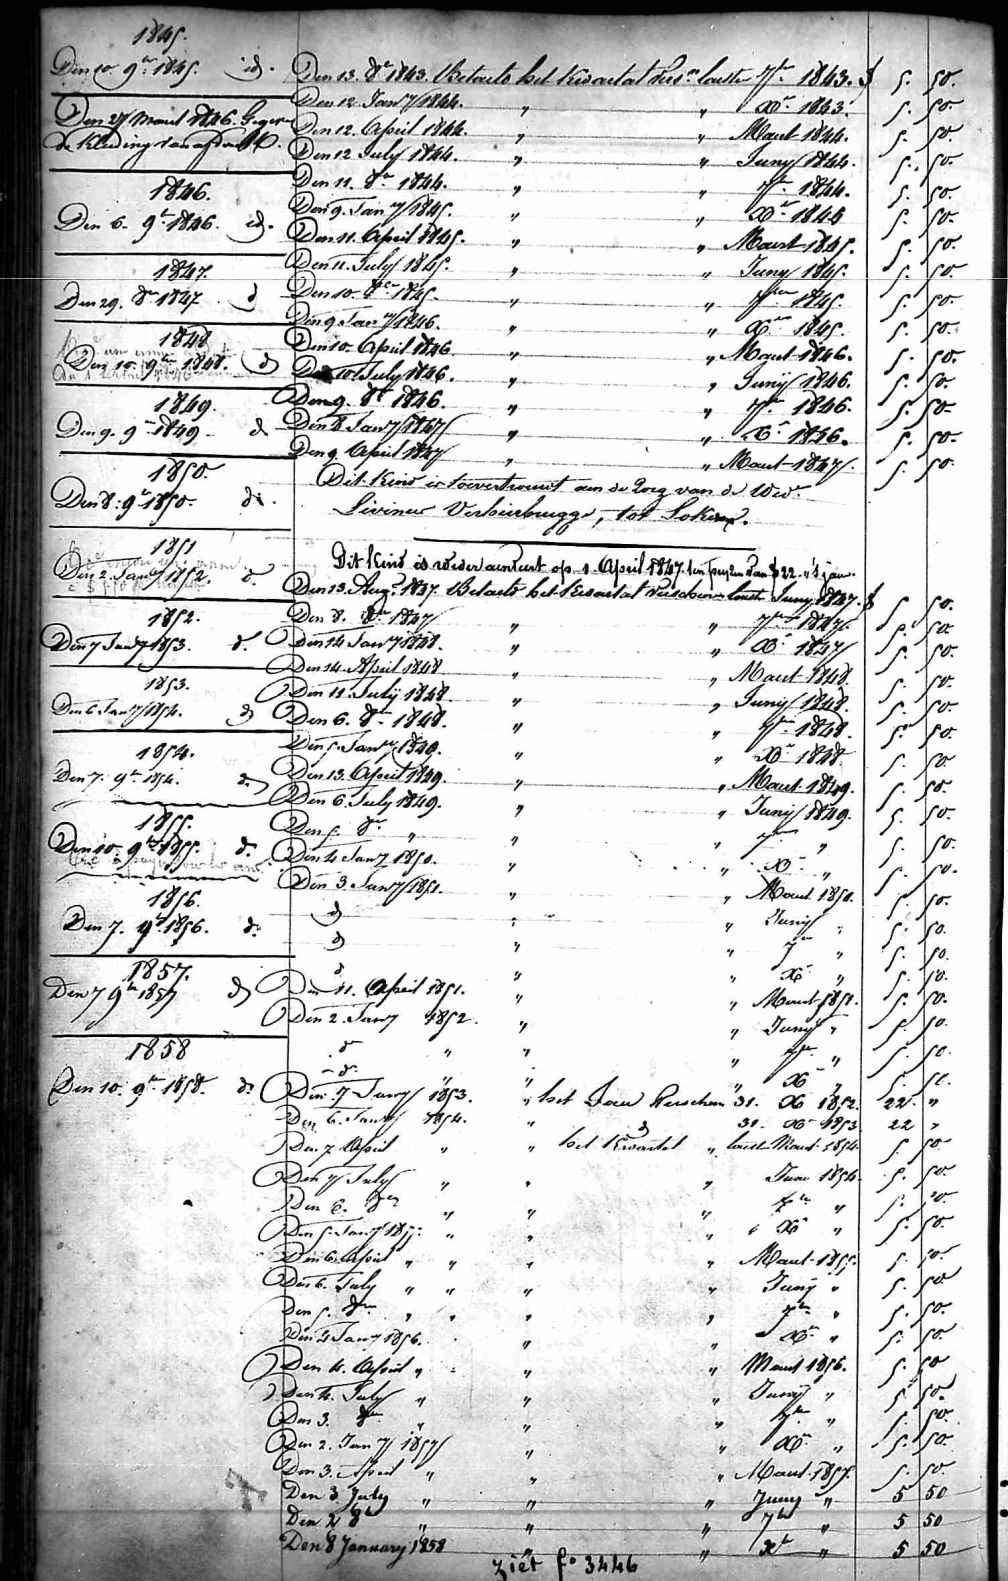 1845.
Den 10. 9br 1845. id.
Den 27 Maart 1846. Gegev
de Kleeding van
1846.
Den 6. 9br 1846. id.
1847.
Den 29. 8br 1847 d
1848
Den 10. 9br 1848. d
1849.
Den 9. 9br 1849 - d
1850.
Den 8. 9br 1850. do.
1851
Den 2. Jany 1852. d.
1852.
Den 7 Jany 1853. d.
1853.
Den 6 Jany 1854. d
1854.
Den 7. 9br 1854. d.
1855.
Den 10. 9br 1855. d.
1856.
Den 7. 9br 1856. do
1857.
Den 7 9br 1857 d
1858
Den 10. 9br 1858. do
Den 13. 8br 1843. Betaald het Kwartaal laatste 7br 1843. f 5. 50.
Den 12 Jany 1844. " " Xbr 1843. 5. 50.
Den 12. April 1844. " " Maart 1844. 5. 50.
Den 12 July 1844. " " Juny 1844. 5. 50.
Den 11. 8br 1844. " " 7br 1844. 5. 50.
Den 9. Jany 1845. " " Xbr 1844 5. 50.
Den 11. April 1845. " " Maart 1845. 5. 50.
Den 11. July 1845. " " Juny 1845. 5. 50.
Den 10. 8br 1845. " " 7br 1845. 5. 50.
Den 9 Jany 1846. " " Xbr 1845. 5. 50.
Den 10. April 1846. " " Maart 1846. 5. 50.
Den 10 July 1846. " " Juny 1846. 5. 50.
Den 9. 8br 1846. " " 7br 1846. 5. 50.
Den 8 Jany 1847 " " Xbr 1846. 5. 50.
Den 9. April 1847 " " Maart 1847. 5. 50.
Dit Kind is toevertrouwt aan de Zorg van de Wed.
Livinus Verbeirbrugge, tot Lokeren.
Dit Kind is weder aenveert op 1 April 1847 ten pryze van f 22 -"'s jaers
Den 13. Augt 1847. Betaald het Kwartaal verschenen laatste Juny 1847. f 5 50.
Den 8. 8br 1847 " " 7br 1847. 5. 50.
Den 14 Jany 1848. " " Xbr 1847 5. 50.
Den 14. April 1848 " " Maart 1848. 5. 50.
Den 11. July 1848. " " Juny 1848. 5. 50.
Den 6. 8br 1848. " " 7br 1848. 5. 50.
Den 5. Jany 1849. " " Xbr 1848 5. 50
Den 13. April 1849. " " Maart 1849. 5. 50.
Den 6. July 1849. " " Juny 1849. 5. 50.
Den 5. 8br " " " 7br " 5. 50.
Den 4 Jany 1850. " " Xbr " 5. 50.
Den 3. Jany 1851. " " Maart 1850. 5. 50.
d " " Juny " 5. 50.
d " " 7br " 5. 50.
d " " Xbr " 5. 50.
Den 11. April 1851. " " Maart 1851. 5. 50.
Den 2. Jany 1852. " " Juny " 5. 50.
d " " " 7br " 5. 50.
d. " " " Xbr " 5. 50.
Den 7 Jany 1853. " het Jaar Verschenen 31. Xbr 1852. 22. "
Den 6. Jany 1854. " " 31. Xbr 1853 22 "
Den 7 April " " het Kwartaal " laatste Maart 1854. 5. 50
Den 7 July " " " Juny 1854. 5. 50.
Den 6. 8br " " " 7br " 5. 50.
Den 5 Jany 1855. " " " Xbr " 5. 50.
Den 6. April " " " " Maart 1855. 5. 50.
Den 6. July " " " " Juny " 5. 50
Den 5. 8br " " " " 7br " 5. 50.
Den 4 Jany 1856. " " Xbr " 5. 50.
Den 4. April " " " Maart 1856. 5. 50
Den 4. July " " " Juny " 5. 50.
Den 3. 8br " " " 7br " 5. 50.
Den 2. Jany 1857 " " Xbr " 5. 50.
Den 3. April " " " Maart 1857. 5. 50.
Den 3 July " " " Juny " 5 50
Den 2 8br " " " 7br " 5 50
Den 8 January 1858 " " Xbr " 5 50
Ziet fo 3446